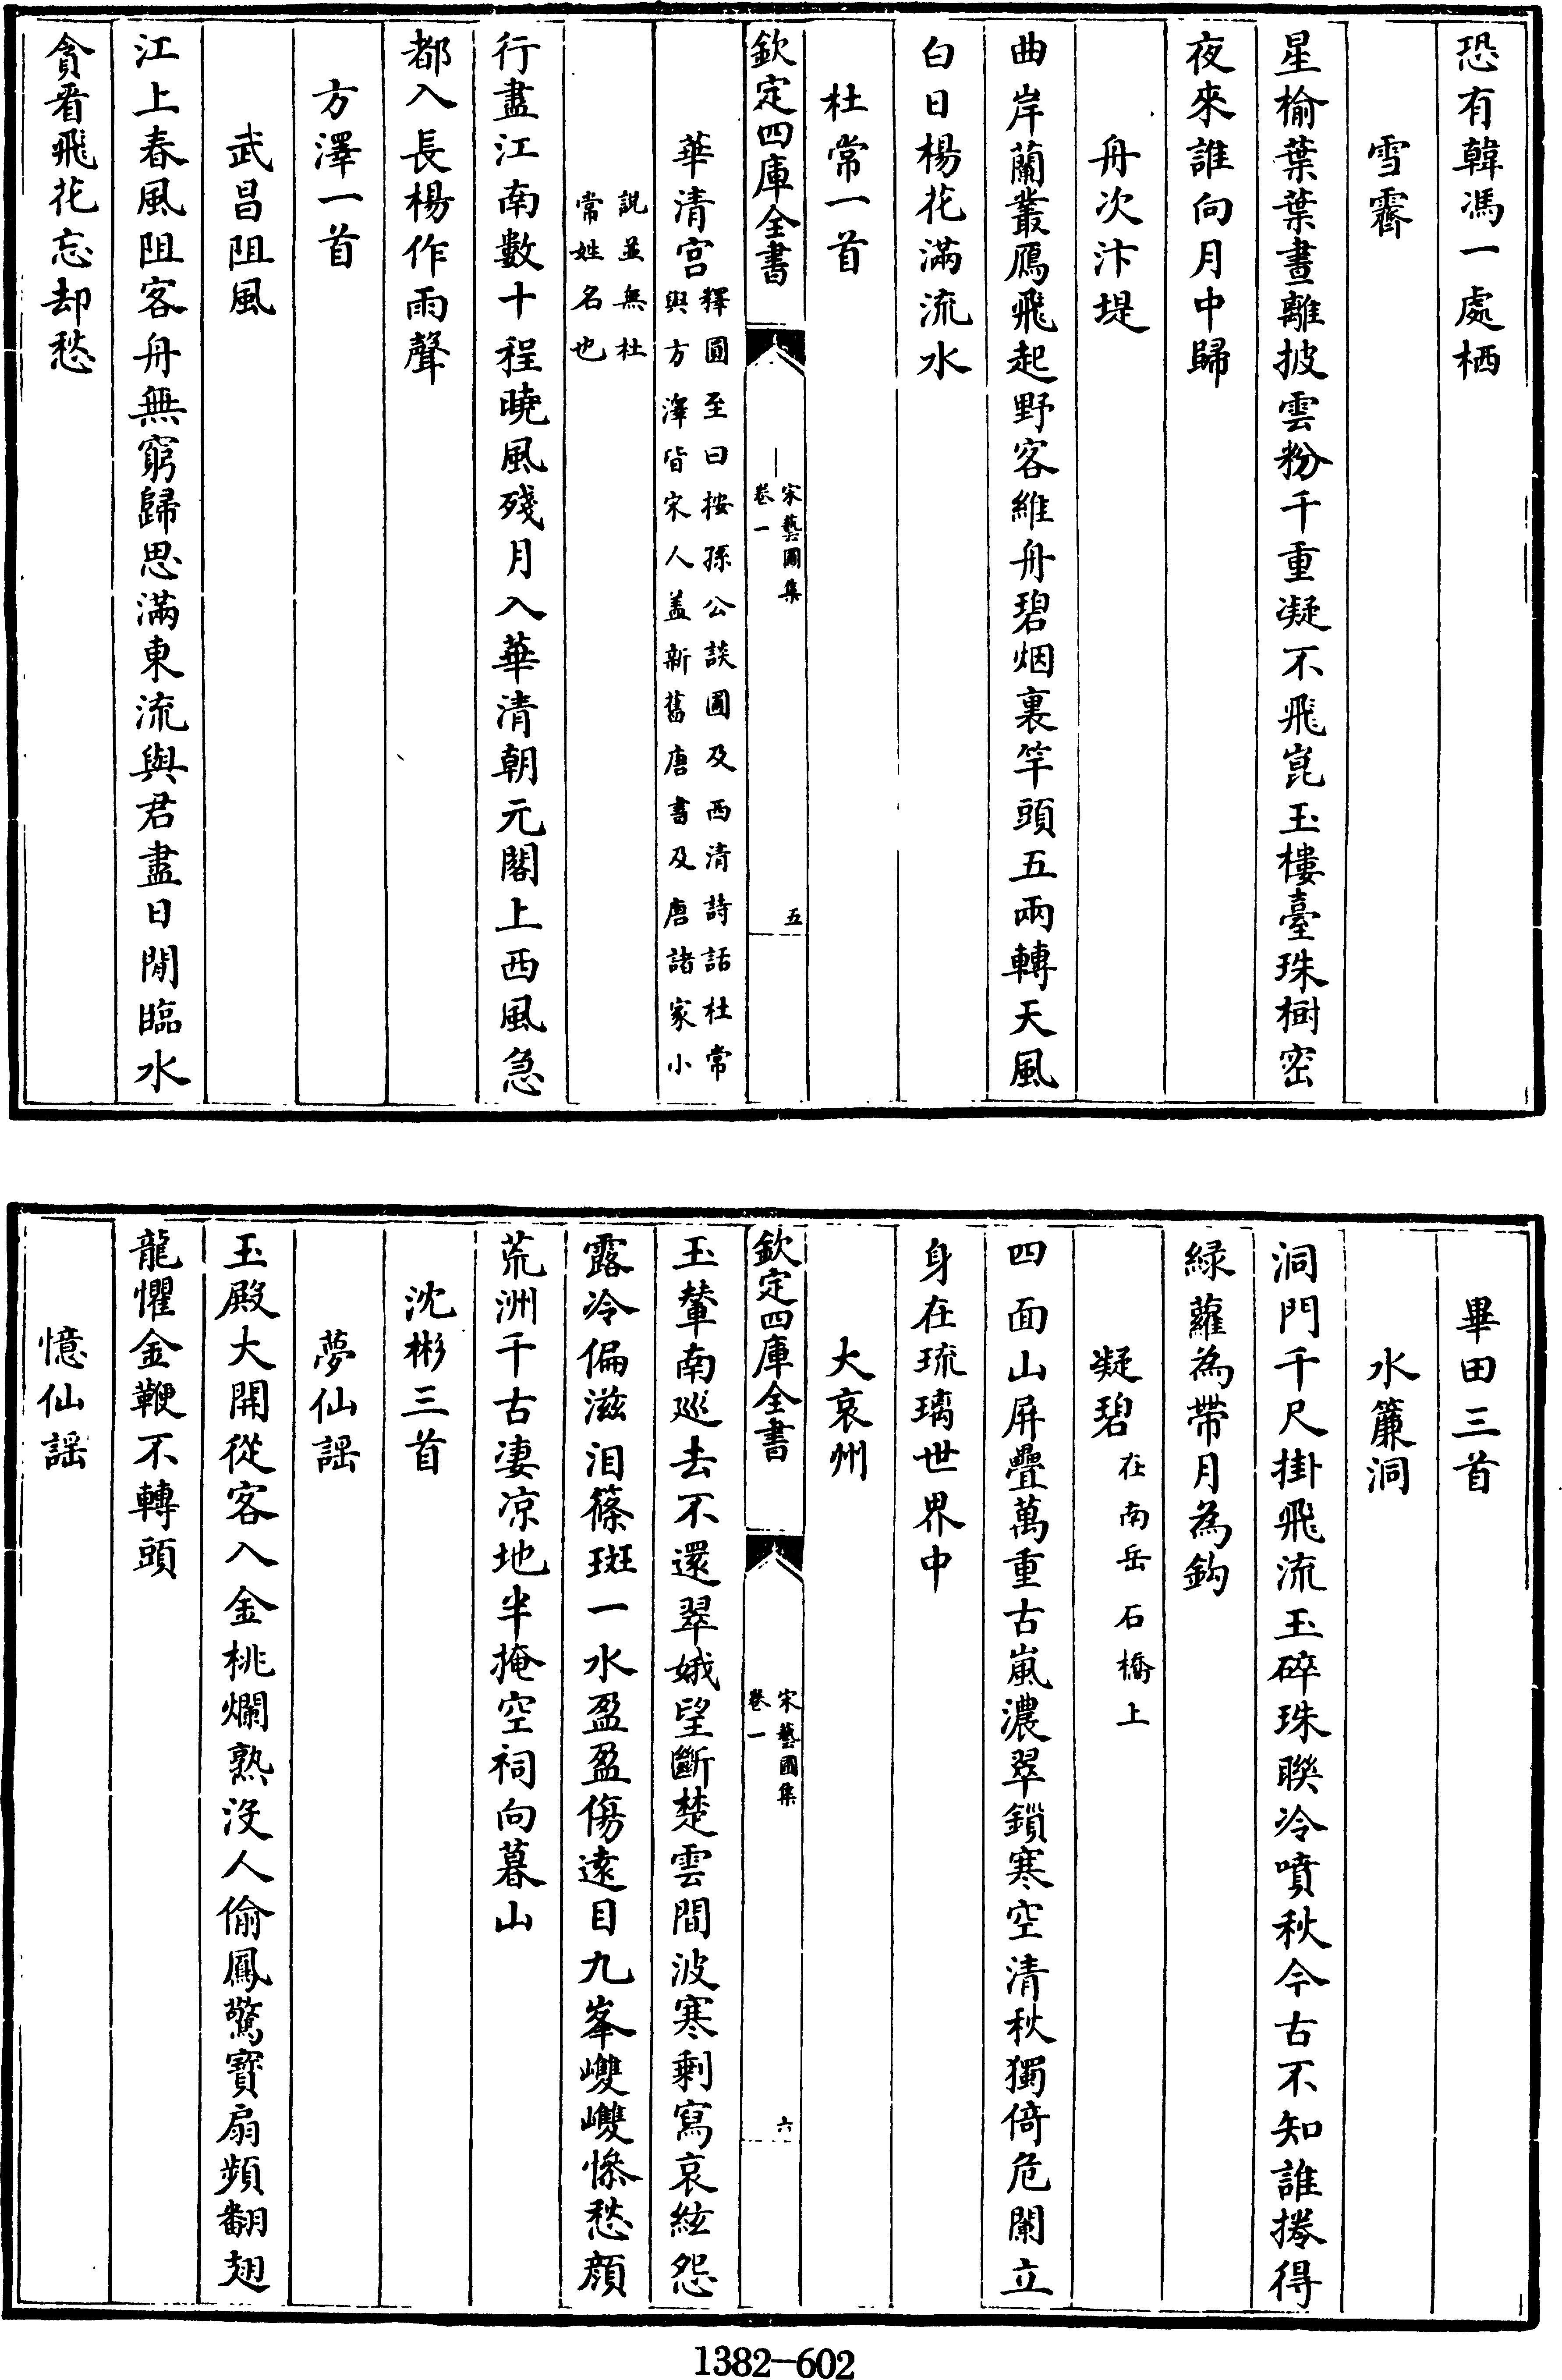 恐有韓馮一處栖
雪霽
星榆葉葉晝離披雲粉千重凝不飛崑玉樓臺珠樹密
夜來誰向月中歸
舟次汴堤
曲岸蘭叢鴈飛起野客維舟碧烟裏竿頭五兩轉天風
白日楊花滿流水
杜常一首
欽定四庫全書
宋藝圃集
卷一
五
華清宫釋圓至曰按孫公談圃及西清詩話杜常
與方澤皆宋人盖新舊唐書及唐諸家小
說並無杜
常姓名也
行盡江南數十程曉風殘月入華清朝元閣上西風急
都入長楊作雨聲
方澤一首
武昌阻風
江上春風阻客舟無窮歸思滿東流與君盡日閒臨水
貪看飛花忘却愁
畢田三首
水簾洞
洞門千尺掛飛流玉碎珠聯冷噴秋今古不知誰捲得
緑蘿為帶月為鈎
凝碧在南岳石橋上
四面山屏疊萬重古嵐濃翠鎖寒空清秋獨倚危闌立
身在琉璃世界中
大哀州
欽定四庫全書
宋藝圃集
卷一
六
玉輦南巡去不還翠娥望斷楚雲間波寒剩寫哀絃怨
露冷偏滋泪篠斑一水盈盈傷遠目九峯巙巙慘愁顔
荒洲千古凄凉地半掩空祠向暮山
沈彬三首
夢仙謡
玉殿大開從客入金桃爛熟没人偷鳳驚寳扇頻翻翅
龍懼金鞭不轉頭
憶仙謡
1382-602